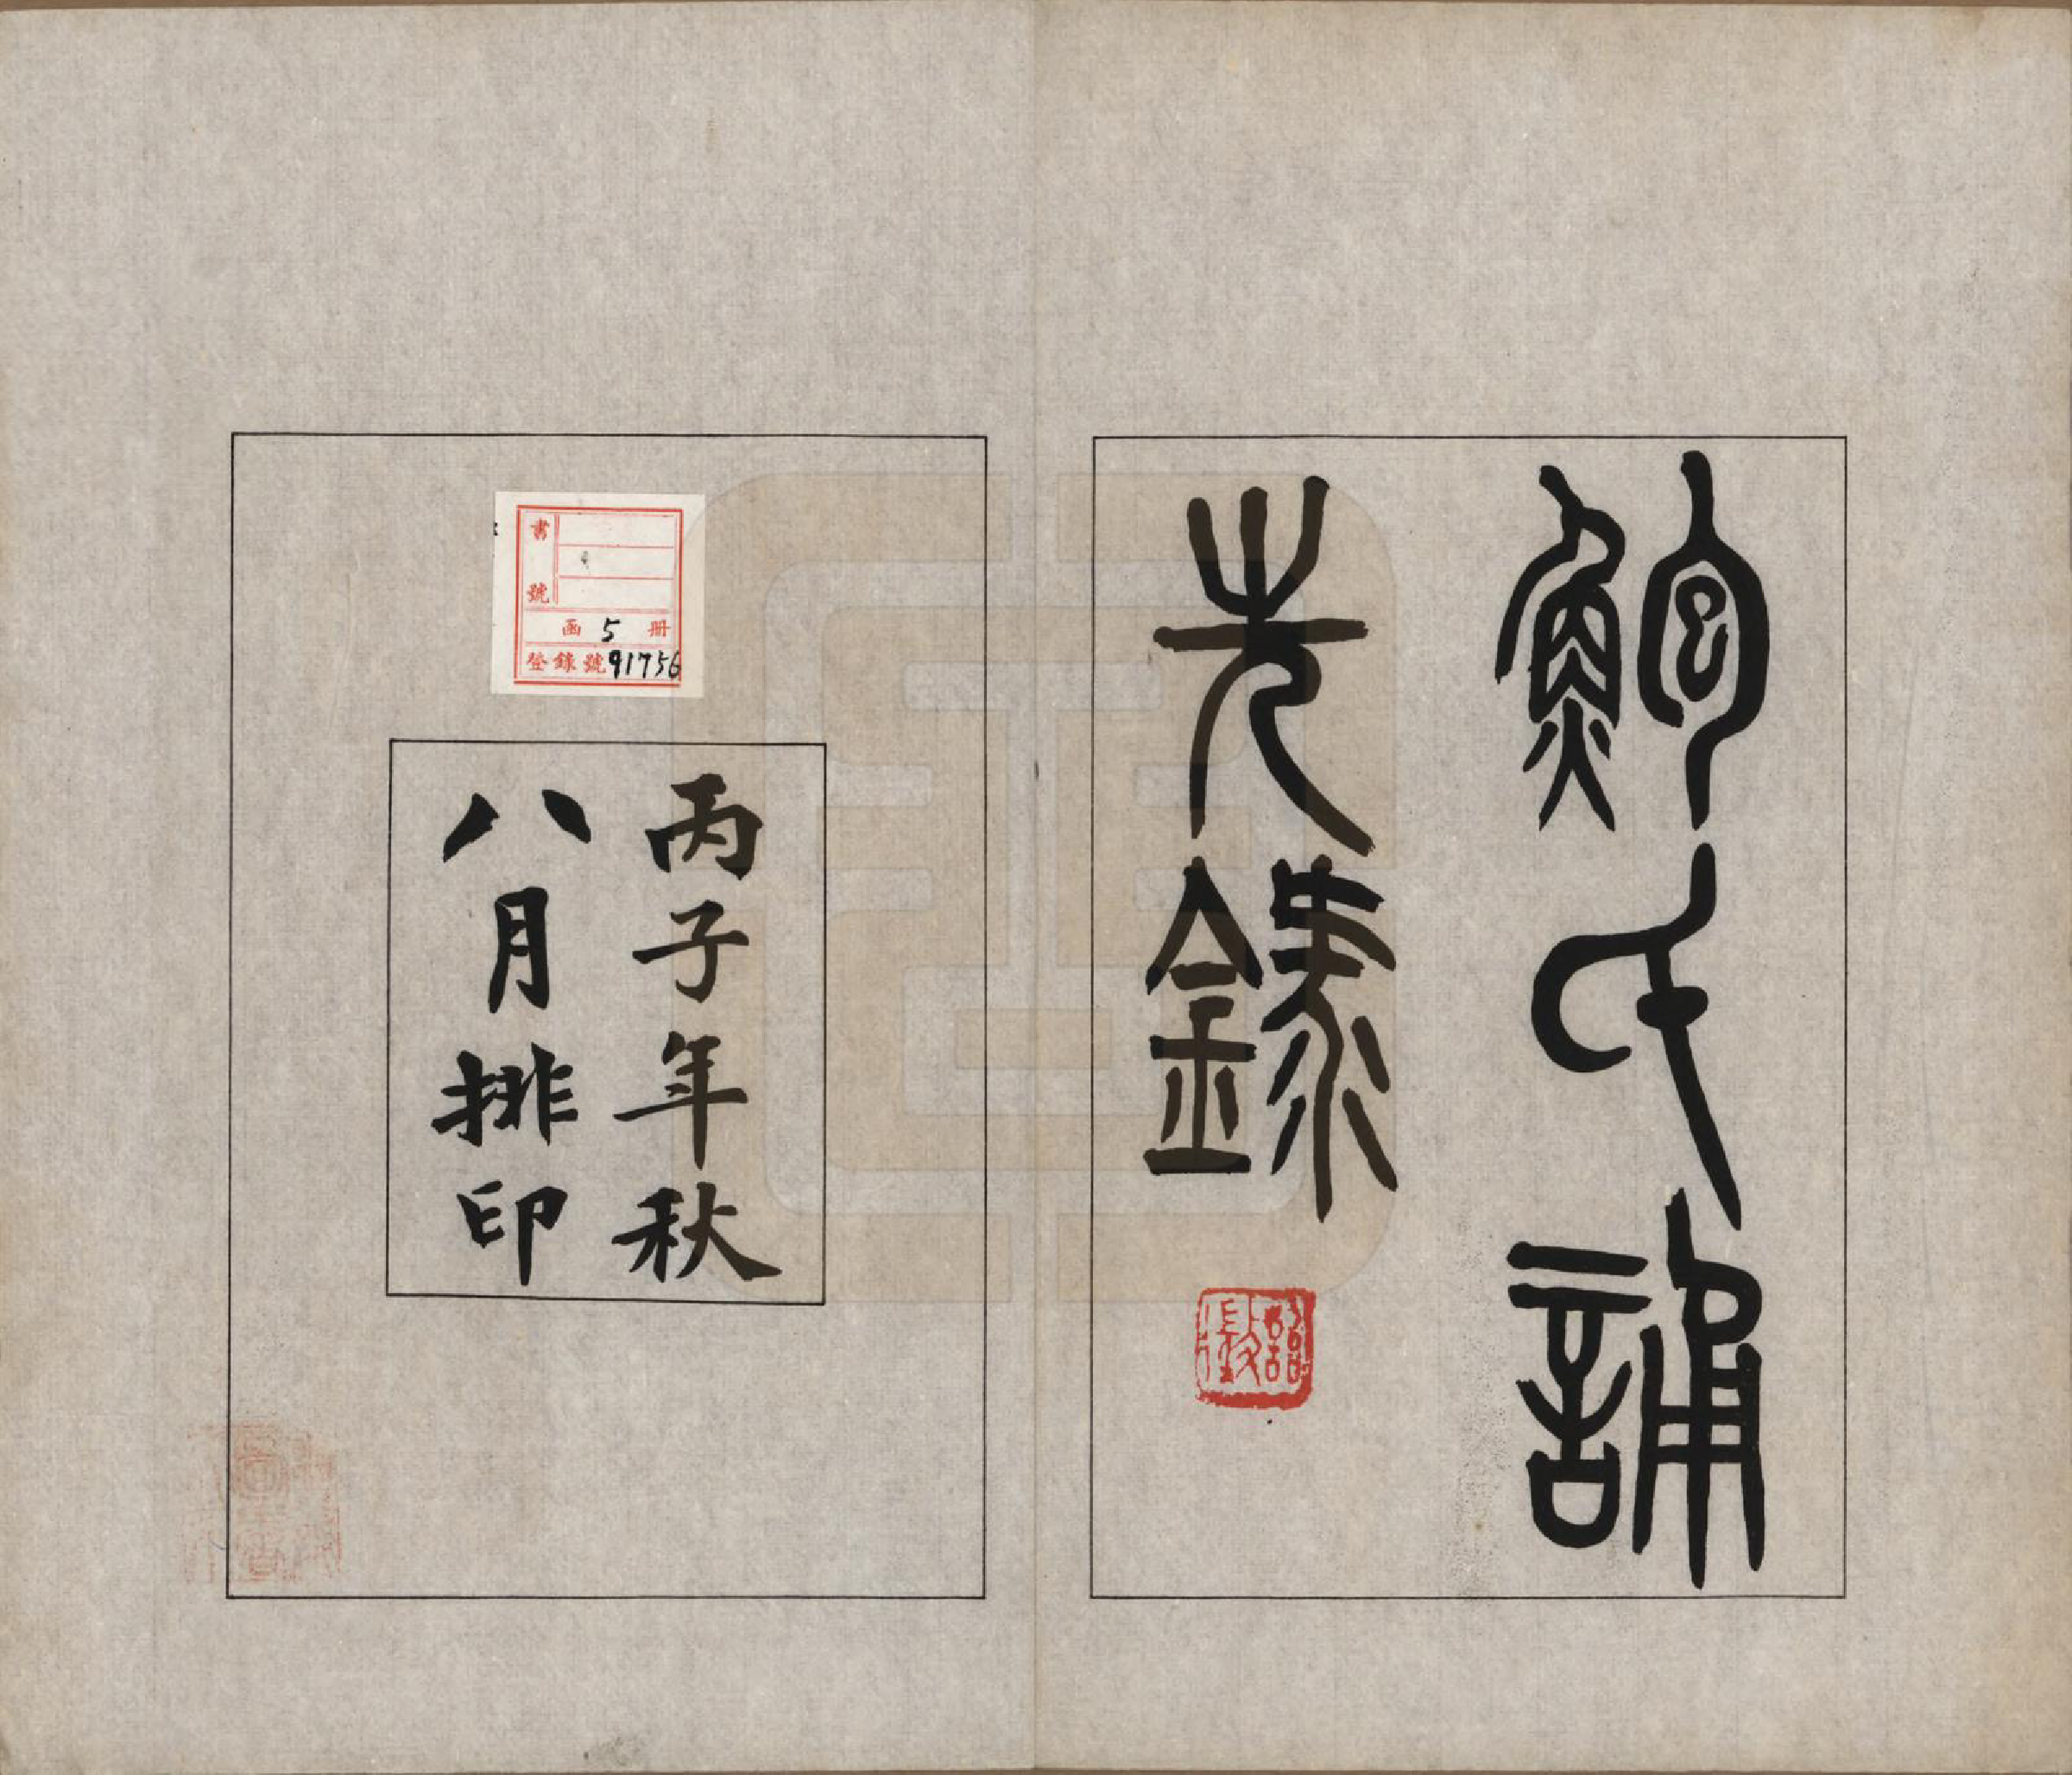 鮑氏誦
先錄
丙子年秋
八月排印
書號
函 5 冊
登錄號 91756